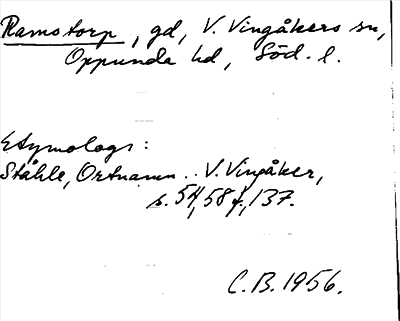 Ramstorp, gd, V. Vingåkers sn,
Oppunda hd, Söd. l.
Etymologi:
Ståhle, Ortnamn.. V. Vingåker,
s. 54, 58 f., 137.
C.B. 1956.